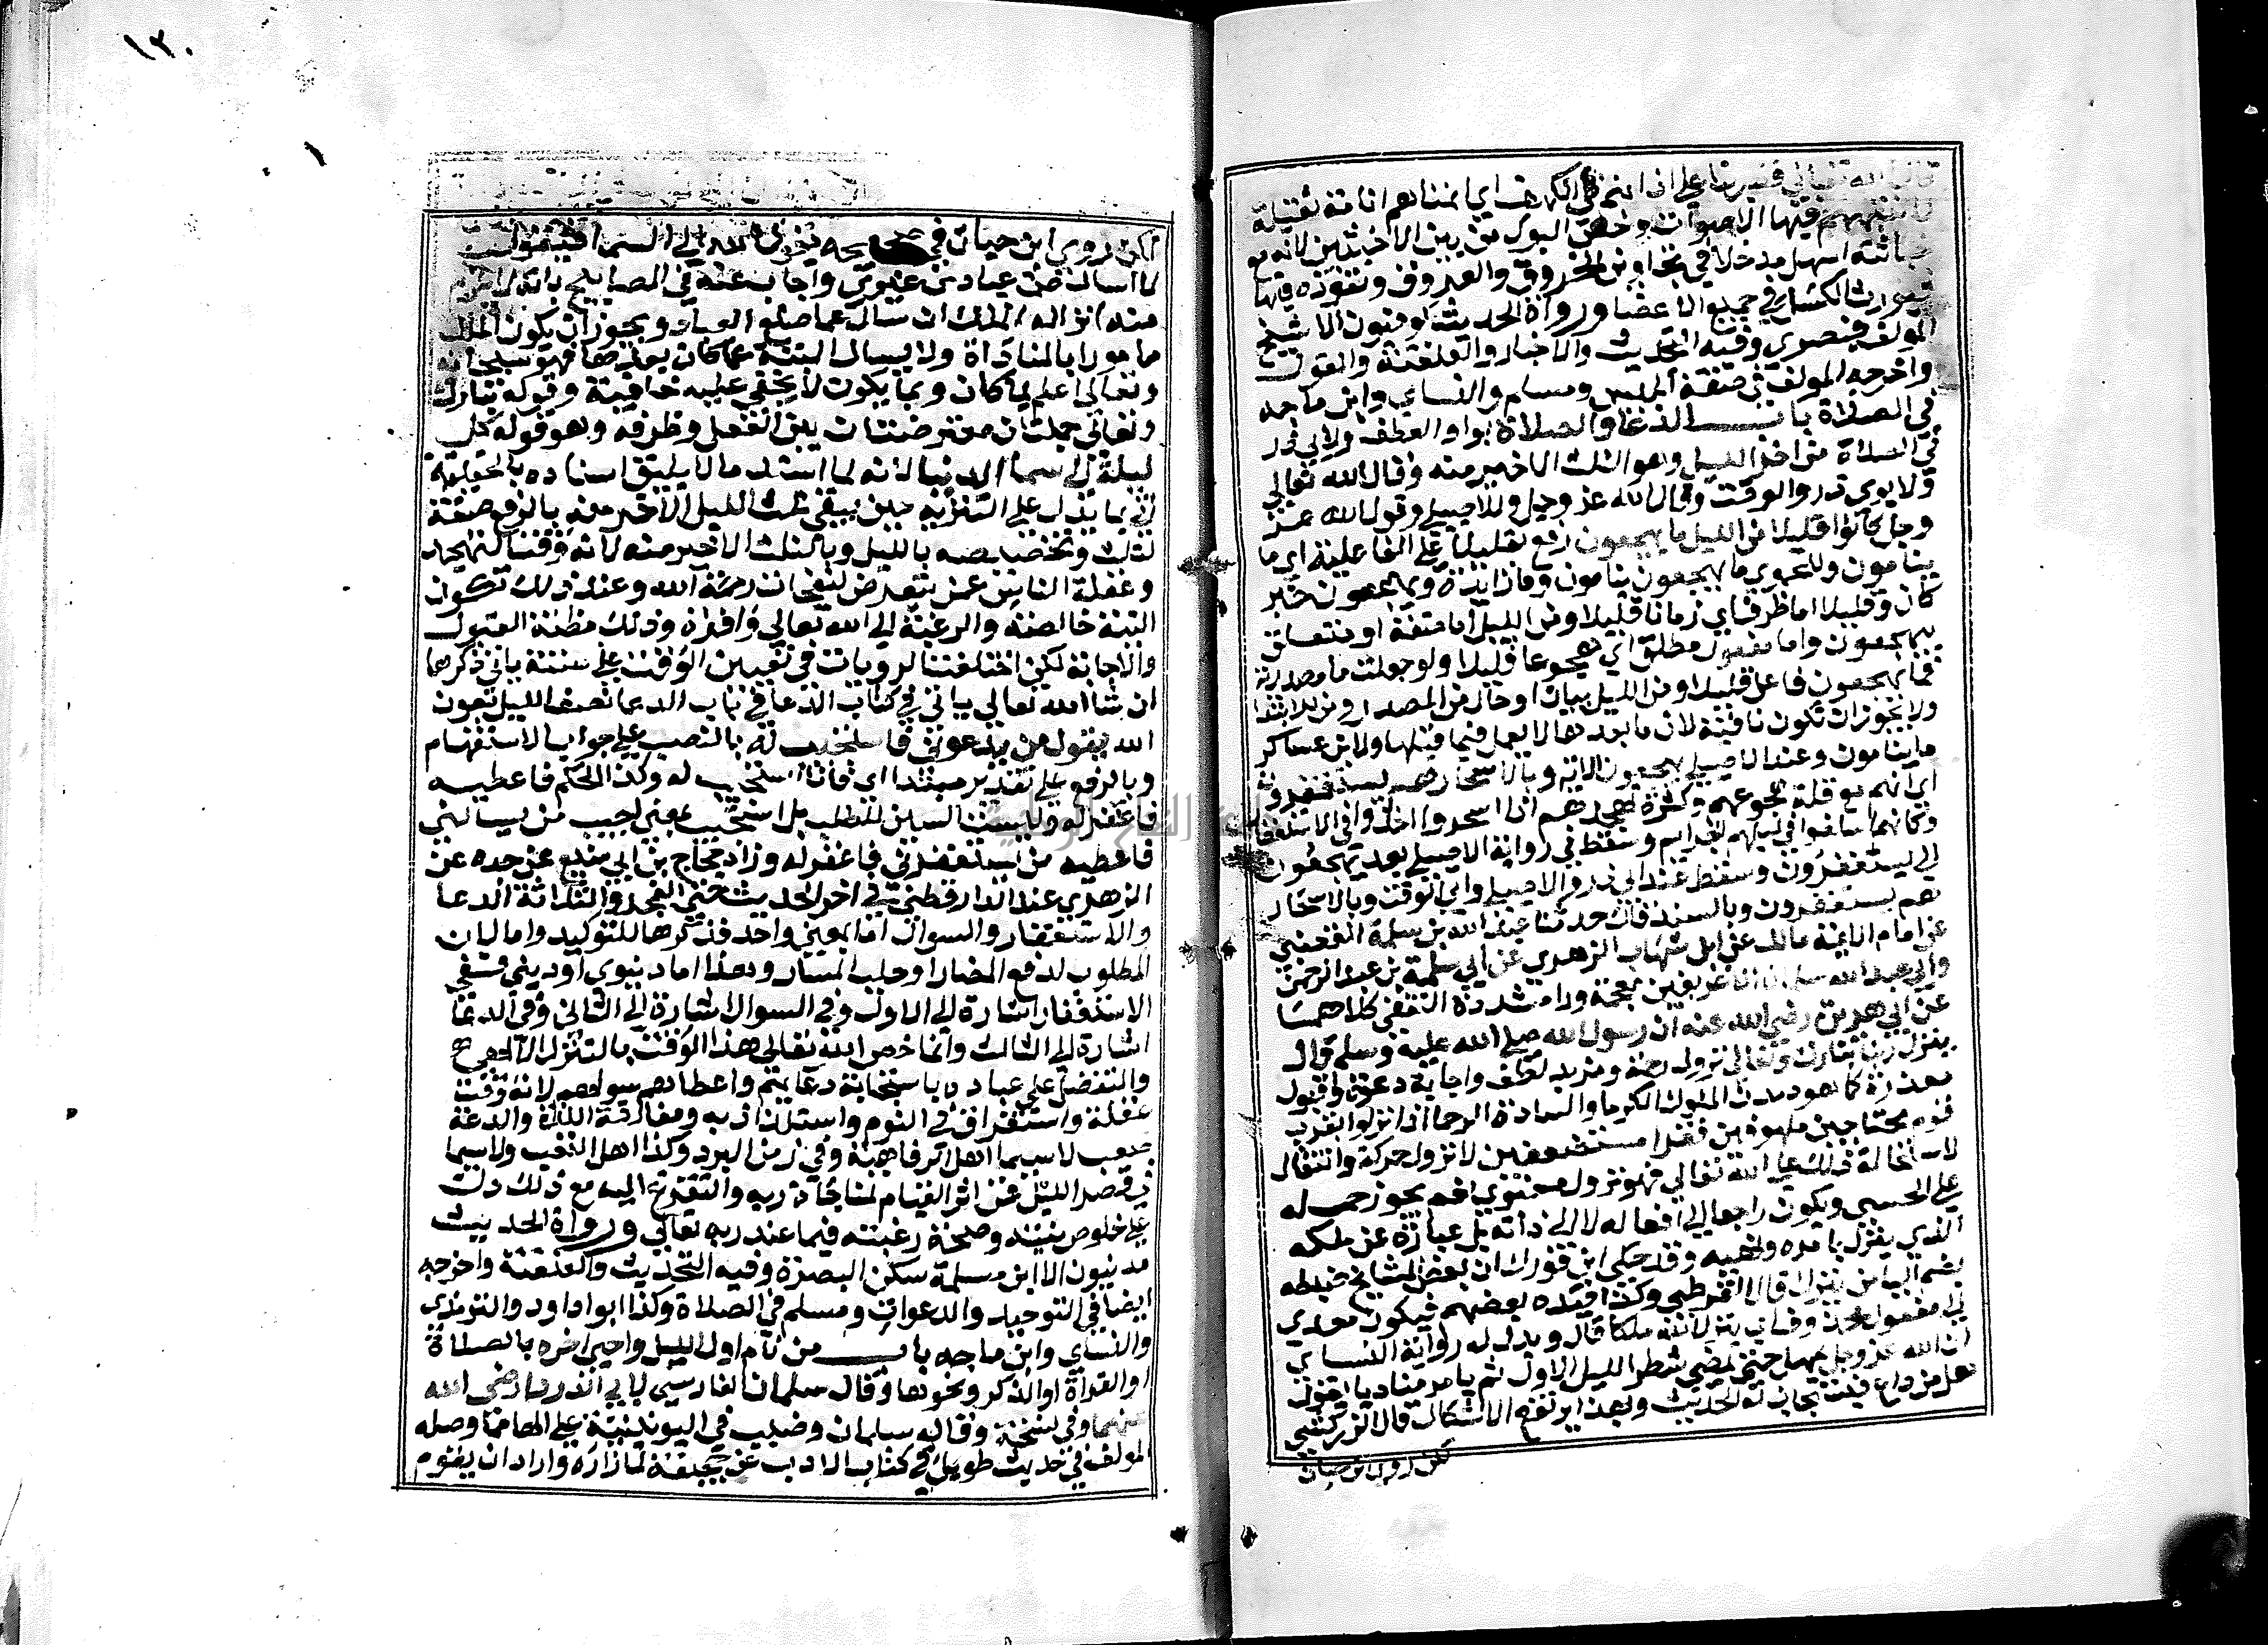 قال الله تعالى فضربنا على اذانهم في الكهف اي انمناهم انامة ثقيلة
لا تنبههم فيها الاصوات وخص البول من بين الاخبثين لانه مع
خباثته اسهل مدخلا في تجاويف الخروق والعروق ونفوذه فيها
فيورث الكسل في جميع الاعضا ورواة الحديث كوفيون الا شيخ
المولف فبصري وفيه التحديث والاخبار والعنعنة والقول
واخرجه المولف في صفة ابليس ومسلم والنساي وابن ماجه
في الصلاة باب الدعا والصلاة بواو العطف ولابي ذر
في الصلاة من اخر الليل وهو الثلث الاخير منه وقال الله تعالى
ولابوي ذر والوقت وقال الله عز وجل وللاصيلي وقول الله عز
وجل كانوا قليلا من الليل ما يهجعون رفع بقليلا على الفاعلية اي ما
ينامون وللحموي ما يهجعون ينامون وما زايدة ويهجعون خبر
كان وقليلا اما ظرف اي زمانا قليلا ومن الليل اما صفة او متعلق
بيهجعون واما مفعول مطلق اي هجوعا قليلا ولو جعلت ما مصدرية
فما يهجعون فاعل قليلا ومن الليل بيان او حال من المصدر ومن للابتدا
ولا يجوز ان تكون نافية لان ما بعدها لا يعمل فيما قبلها ولابن عساكر
ما ينامون وعند الاصيلي يهجعون الاية وبالاسحار هم يستغفرون
اي انهم مع قلة هجوعهم وكثرة تهجدهم اذا اسحروا اخذوا في الاستغفار
وكانهم اسلفوا في ليلهم الجرايم وسقط في رواية الاصيلي بعد يهجعون
الى يستغفرون وسقط عند ابي ذر والاصيلي وابي الوقت وبالاسحار
هم يستغفرون وبالسند قال حدثنا عبد الله بن مسلمة القعنبي
عن امام الايمة مالك عن ابن شهاب الزهري عن ابي سلمة بن عبد الرحمن
وابي عبد الله سلمان الاغر بغين معجمة وراء مشددة الثقفي كلاهما
عن ابي هريرة رضي الله عنه ان رسول الله صلى الله عليه وسلم قال
ينزل ربنا تبارك وتعالى نزول رحمة ومزيد لطف واجابة دعوة وقبول
معذرة كما هو ديدن الملوك الكرما والسادة الرحما اذا نزلوا بقرب
قوم محتاجين ملهوفين فقرا مستضعفين لا نزول حركة وانتقال
لاستحالة ذلك على الله تعالى فهو نزول معنوي نعم يجوز حمله
على الحسي ويكون راجعا الى افعاله لا الى ذاته بل عبارة عن ملكه
الذي ينزل بامره ونهيه وقد حكى ابن فورك ان بعض المشايخ ضبطه
بضم اليا من ينزل قال القرطبي وكذا قيده بعضهم فيكون معدي
الى مفعول محذوف اي ينزل الله ملكا قال ويدل له رواية النساي
ان الله عز وجل يمهل حتى يمضي شطر الليل الاول ثم يامر مناديا يقول
هل من داع فيستجاب له الحديث وبهذا يرتفع الاشكال قال الزركشي
لكن روى ابن حبان
١٢٠
لكن روى ابن حبان في صحيحه ينزل الله الى السما فيقول
لا اسال عن عبادي غيري واجاب عنه في المصابيح بانه لا يلزم
من انزاله الملك ان يسال عما صنع العباد ويجوز ان يكون الملك
مامورا بالمناداة ولا يسال البتة عما كان بعدها فهو سبحانه
وتعالى اعلم بما كان وبما يكون لا يخفى عليه خافية وقوله تبارك
وتعالى جملتان معترضتان بين الفعل وظرفه وهو قوله كل
ليلة الى سما الدنيا لانه لما اسند ما لا يليق اسناده بالحقيقة
اتى بما يدل على التنزيه حين يبقى ثلث الليل الاخر منه بالرفع صفة
لثلث وتخصيصه بالليل وبالثلث الاخير منه لانه وقت التهجد
وغفلة الناس عمن يتعرض لنفحات رحمة الله وعند ذلك تكون
النية خالصة والرغبة الى الله تعالى وافرة وذلك مظنة القبول
والاجابة لكن اختلفت الروايات في تعيين الوقت على ستة ياتي ذكرها
ان شا الله تعالى ياتي في كتاب الدعا في باب الدعا نصف الليل بعون
الله يقول من يدعوني فاستجيب له بالنصب على جواب الاستفهام
وبالرفع على تقدير مبتدا اي فانا استجيب له وكذا الحكم فاعطيه
فاغفر له وليست السين للطلب بل استجيب بمعنى اجيب من يسالني
فاعطيه من يستغفرني فاغفر له وزاد حجاج بن ابي منيع عن جده عن
الزهري عند الدارقطني في اخر الحديث حتى الفجر والثلاثة الدعا
والاستغفار والسوال اما بمعنى واحد فذكرها للتوكيد واما لان
المطلوب لدفع المضار او جلب المسار وهذا اما دنيوي او ديني ففي
الاستغفار اشارة الى الاول وفي السوال اشارة الى الثاني وفي الدعا
اشارة الى الثالث وانما خص الله تعالى هذا الوقت بالتنزل الالهي
والتفضل على عباده باستجابة دعايهم واعطايهم سولهم لانه وقت
غفلة واستغراق في النوم واستلذاذ به ومفارقة اللذة والدعة
صعب لا سيما اهل الرفاهية وفي زمن البرد وكذا اهل التعب ولا سيما
في قصر الليل فمن اثر القيام لمناجاة ربه والتضرع اليه مع ذلك دل
على خلوص نيته وصحة رغبته فيما عند ربه تعالى ورواة الحديث
مدنيون الا ابن مسلمة سكن البصرة وفيه التحديث والعنعنة واخرجه
ايضا في التوحيد والدعوات ومسلم في الصلاة وكذا ابو داود والترمذي
والنساي وابن ماجه باب من نام اول الليل واحيى اخره بالصلاة
او القراة او الذكر ونحوها وقال سلمان الفارسي لابي الدرداء رضي الله
عنهما وفي نسخة وقاله سلمان وضبب في اليونينية على الها مما وصله
المولف في حديث طويل في كتاب الادب عن جحيفة لما زاره واراد ان يقوم